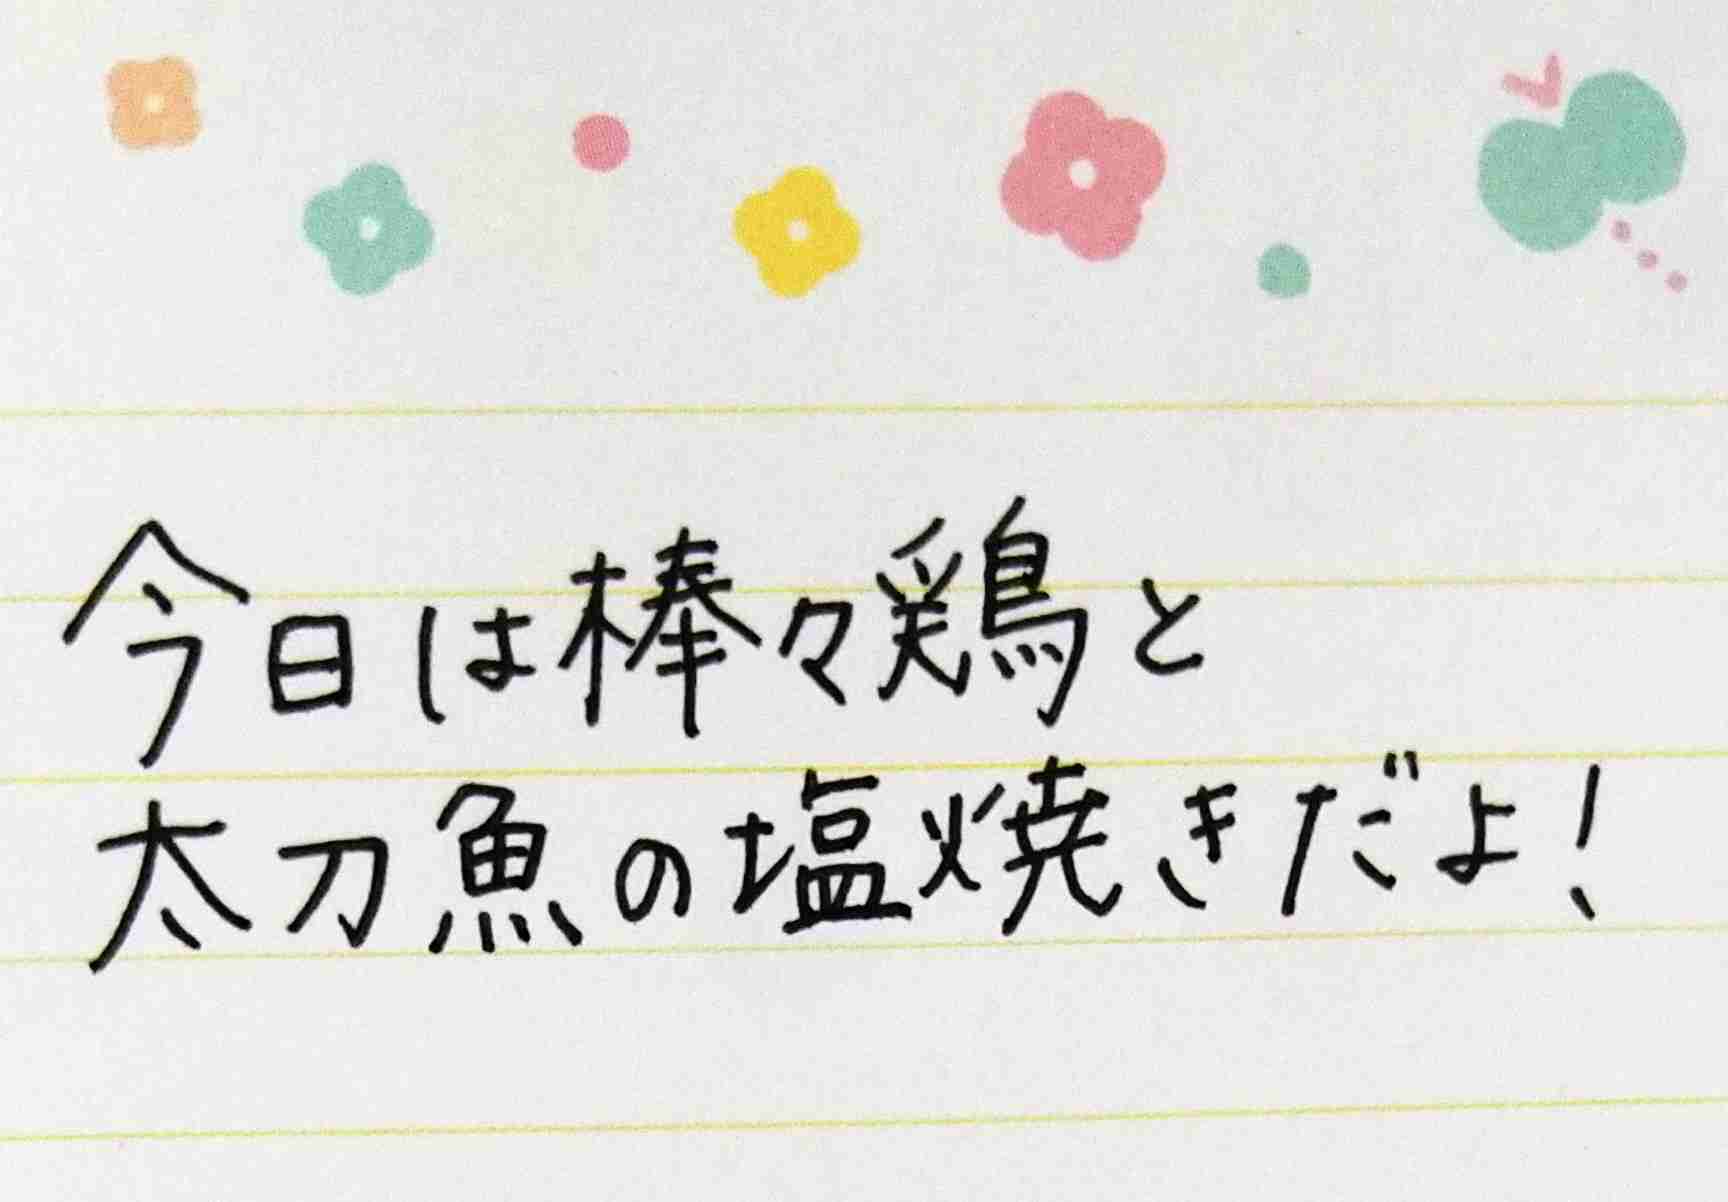 今日は棒々鶏と
太刀魚の塩焼きだよ!